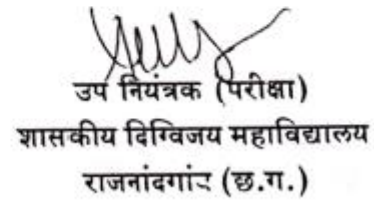 उप नियंत्रक (परीक्षा)
शासकीय दिग्विजय महाविद्यालय
राजनांदगांव (छ.ग.)